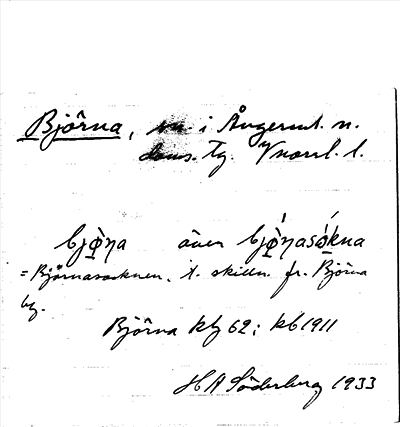 Björna, sn i Ångerml. n.
doms. tg. Vnorrl. l.
bjò̱ŋa även bjò̱ŋasó̱kna
= Björnasocknen, t. skilln. fr. Björna
by.
Björna kby 62; kb 1911
H A Söderberg 1933